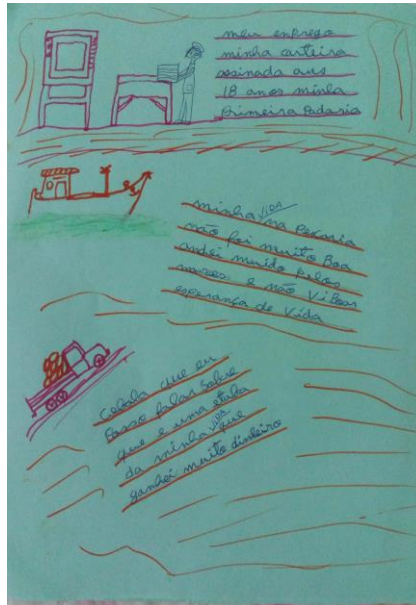 meu emprego
minha carteira
assinada aus
18 anos minha
Primeira Padaria
minha VIDA na Pescaria
não foi muito Boa
andei muido Pelos
mares e não Vi Boas
esperança de Vida
cebala que eu
Posso falar Sobre
que e uma etaba
da minha VIDA que
ganhei muito dinheiro